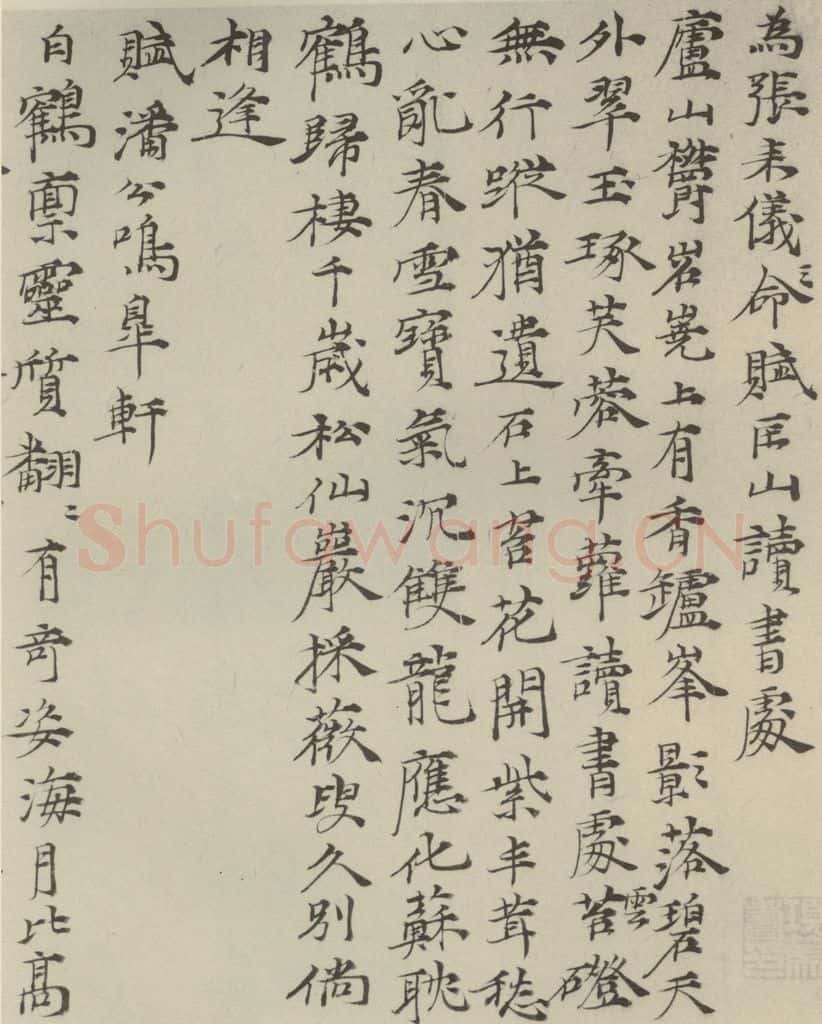 為張来儀命賦匡山讀書處
廬山欝岧嶤上有香鑪峯影落碧天
外翠玉琢芙蓉牽蘿讀書處苔雲磴
無行蹤猶遺石上苔花開紫丰茸愁
心亂春雪寶氣沉雙龍應化蘇耽
鶴歸棲千歲松仙巖採薇叟久別倘
相逢
賦潘公鳴皐軒
白鶴稟靈質翩〻有奇姿海月比高
Shufawang.CN